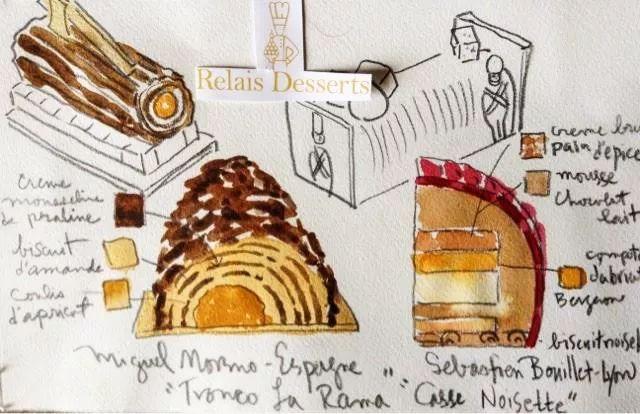 Relais Desserts
creme brul
pain d'epice
mousse
chocolat
lait
compote
d'abric
Bergamo
biscuit noiset
creme
mousseline
de praline
biscuit
d'amande
coulis
d'apricot
Miguel Moreno - Espagne
"Tronco La Rama"
Sebastien Bouillet - Lyon
"Casse Noisette"